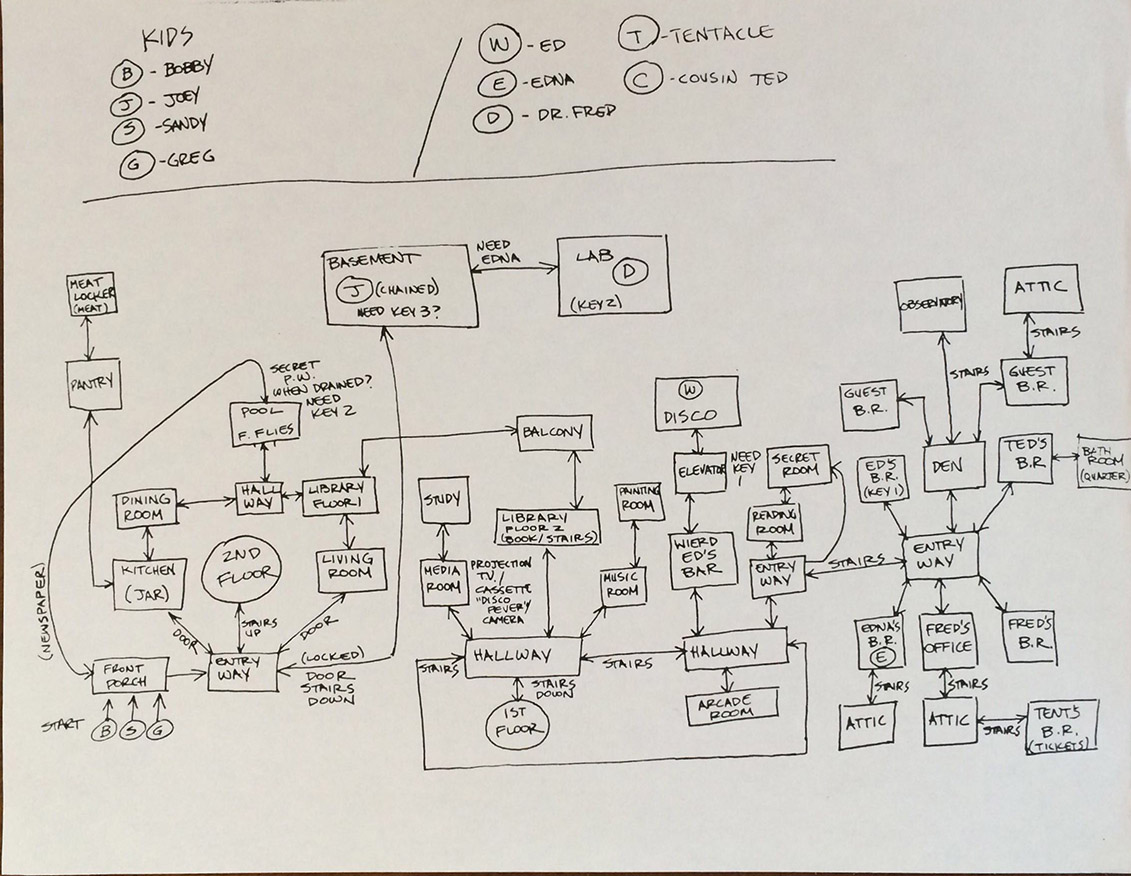 KIDS
B - BOBBY
J - JOEY
S - SANDY
G - GREG
W - ED
E - EDNA
D - DR. FRED
T - TENTACLE
C - COUSIN TED
BASEMENT
J (CHAINED)
NEED KEY 3?
NEED
EDNA
LAB D
(KEY 2)
MEAT
LOCKER
(MEAT)
PANTRY
SECRET
P.W.
WHEN DRAINED?
NEED
KEY 2
POOL
F. FLIES
DINING
ROOM
HALL
WAY
LIBRARY
FLOOR 1
KITCHEN
(JAR)
2ND
FLOOR
LIVING
ROOM
(NEWSPAPER)
DOOR
STAIRS
UP
DOOR
FRONT
PORCH
ENTRY
WAY
(LOCKED)
DOOR
STAIRS
DOWN
START
B S G
BALCONY
STUDY
LIBRARY
FLOOR 2
(BOOK/STAIRS)
PAINTING
ROOM
MEDIA
ROOM
PROJECTION
TV./
CASSETTE
"DISCO
FEVER"/
CAMERA
MUSIC
ROOM
HALLWAY
STAIRS
STAIRS
STAIRS
DOWN
1ST
FLOOR
W
DISCO
ELEVATOR
NEED
KEY
1
SECRET
ROOM
READING
ROOM
WIERD
ED'S
BAR
ENTRY
WAY
HALLWAY
ARCADE
ROOM
STAIRS
OBSERVATORY
ATTIC
STAIRS
STAIRS
GUEST
B.R.
GUEST
B.R.
ED'S
B.R.
(KEY 1)
DEN
TED'S
B.R
BATH
ROOM
(QUARTER)
ENTRY
WAY
EDNA'S
B.R.
E
FRED'S
OFFICE
FRED'S
B.R.
STAIRS
STAIRS
ATTIC
ATTIC
STAIRS
TENT'S
B.R.
(TICKETS)